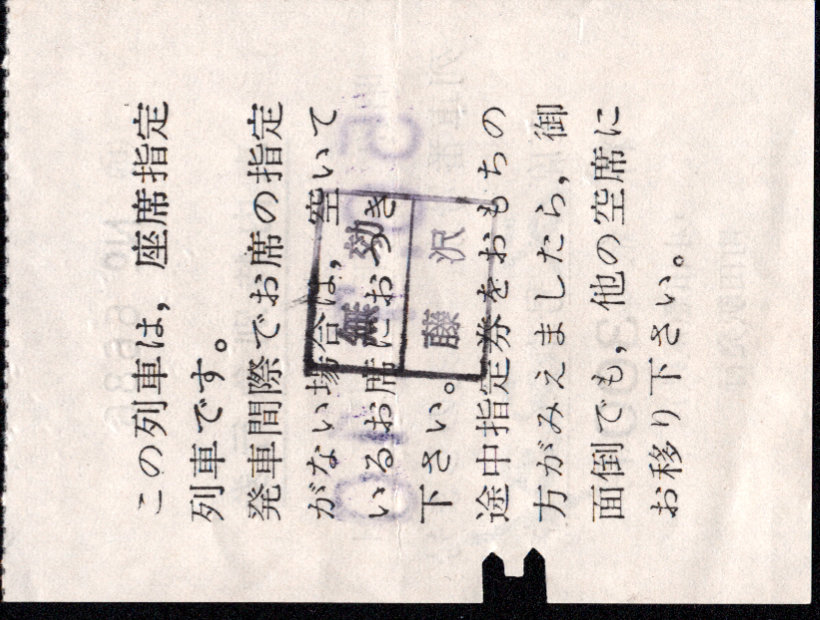 この列車は，座席指定
列車です。
発車間際でお席の指定
がない場合は，空いて
いるお席におつき
下さい。
途中指定券をおもちの
方がみえましたら，御
面倒でも，他の空席に
お移り下さい。
無効
藤沢